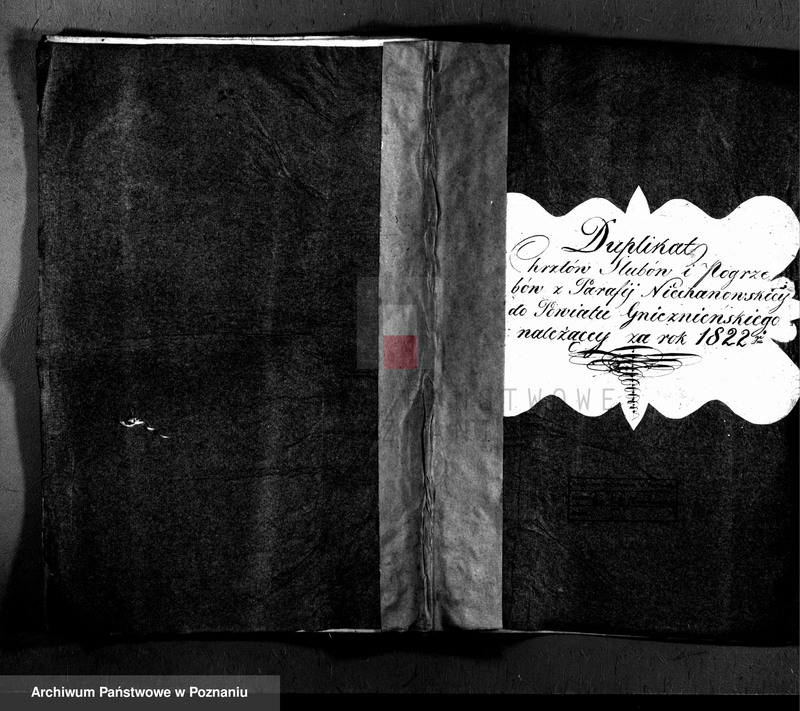 Duplikat
Chrztów Slubów i Pogrze
bów z Parafij Niechanowskiey
do Powiatu Gnieznieńskiego
należącey za rok 1822
TWOWE
Archiwum Państwowe w Poznaniu